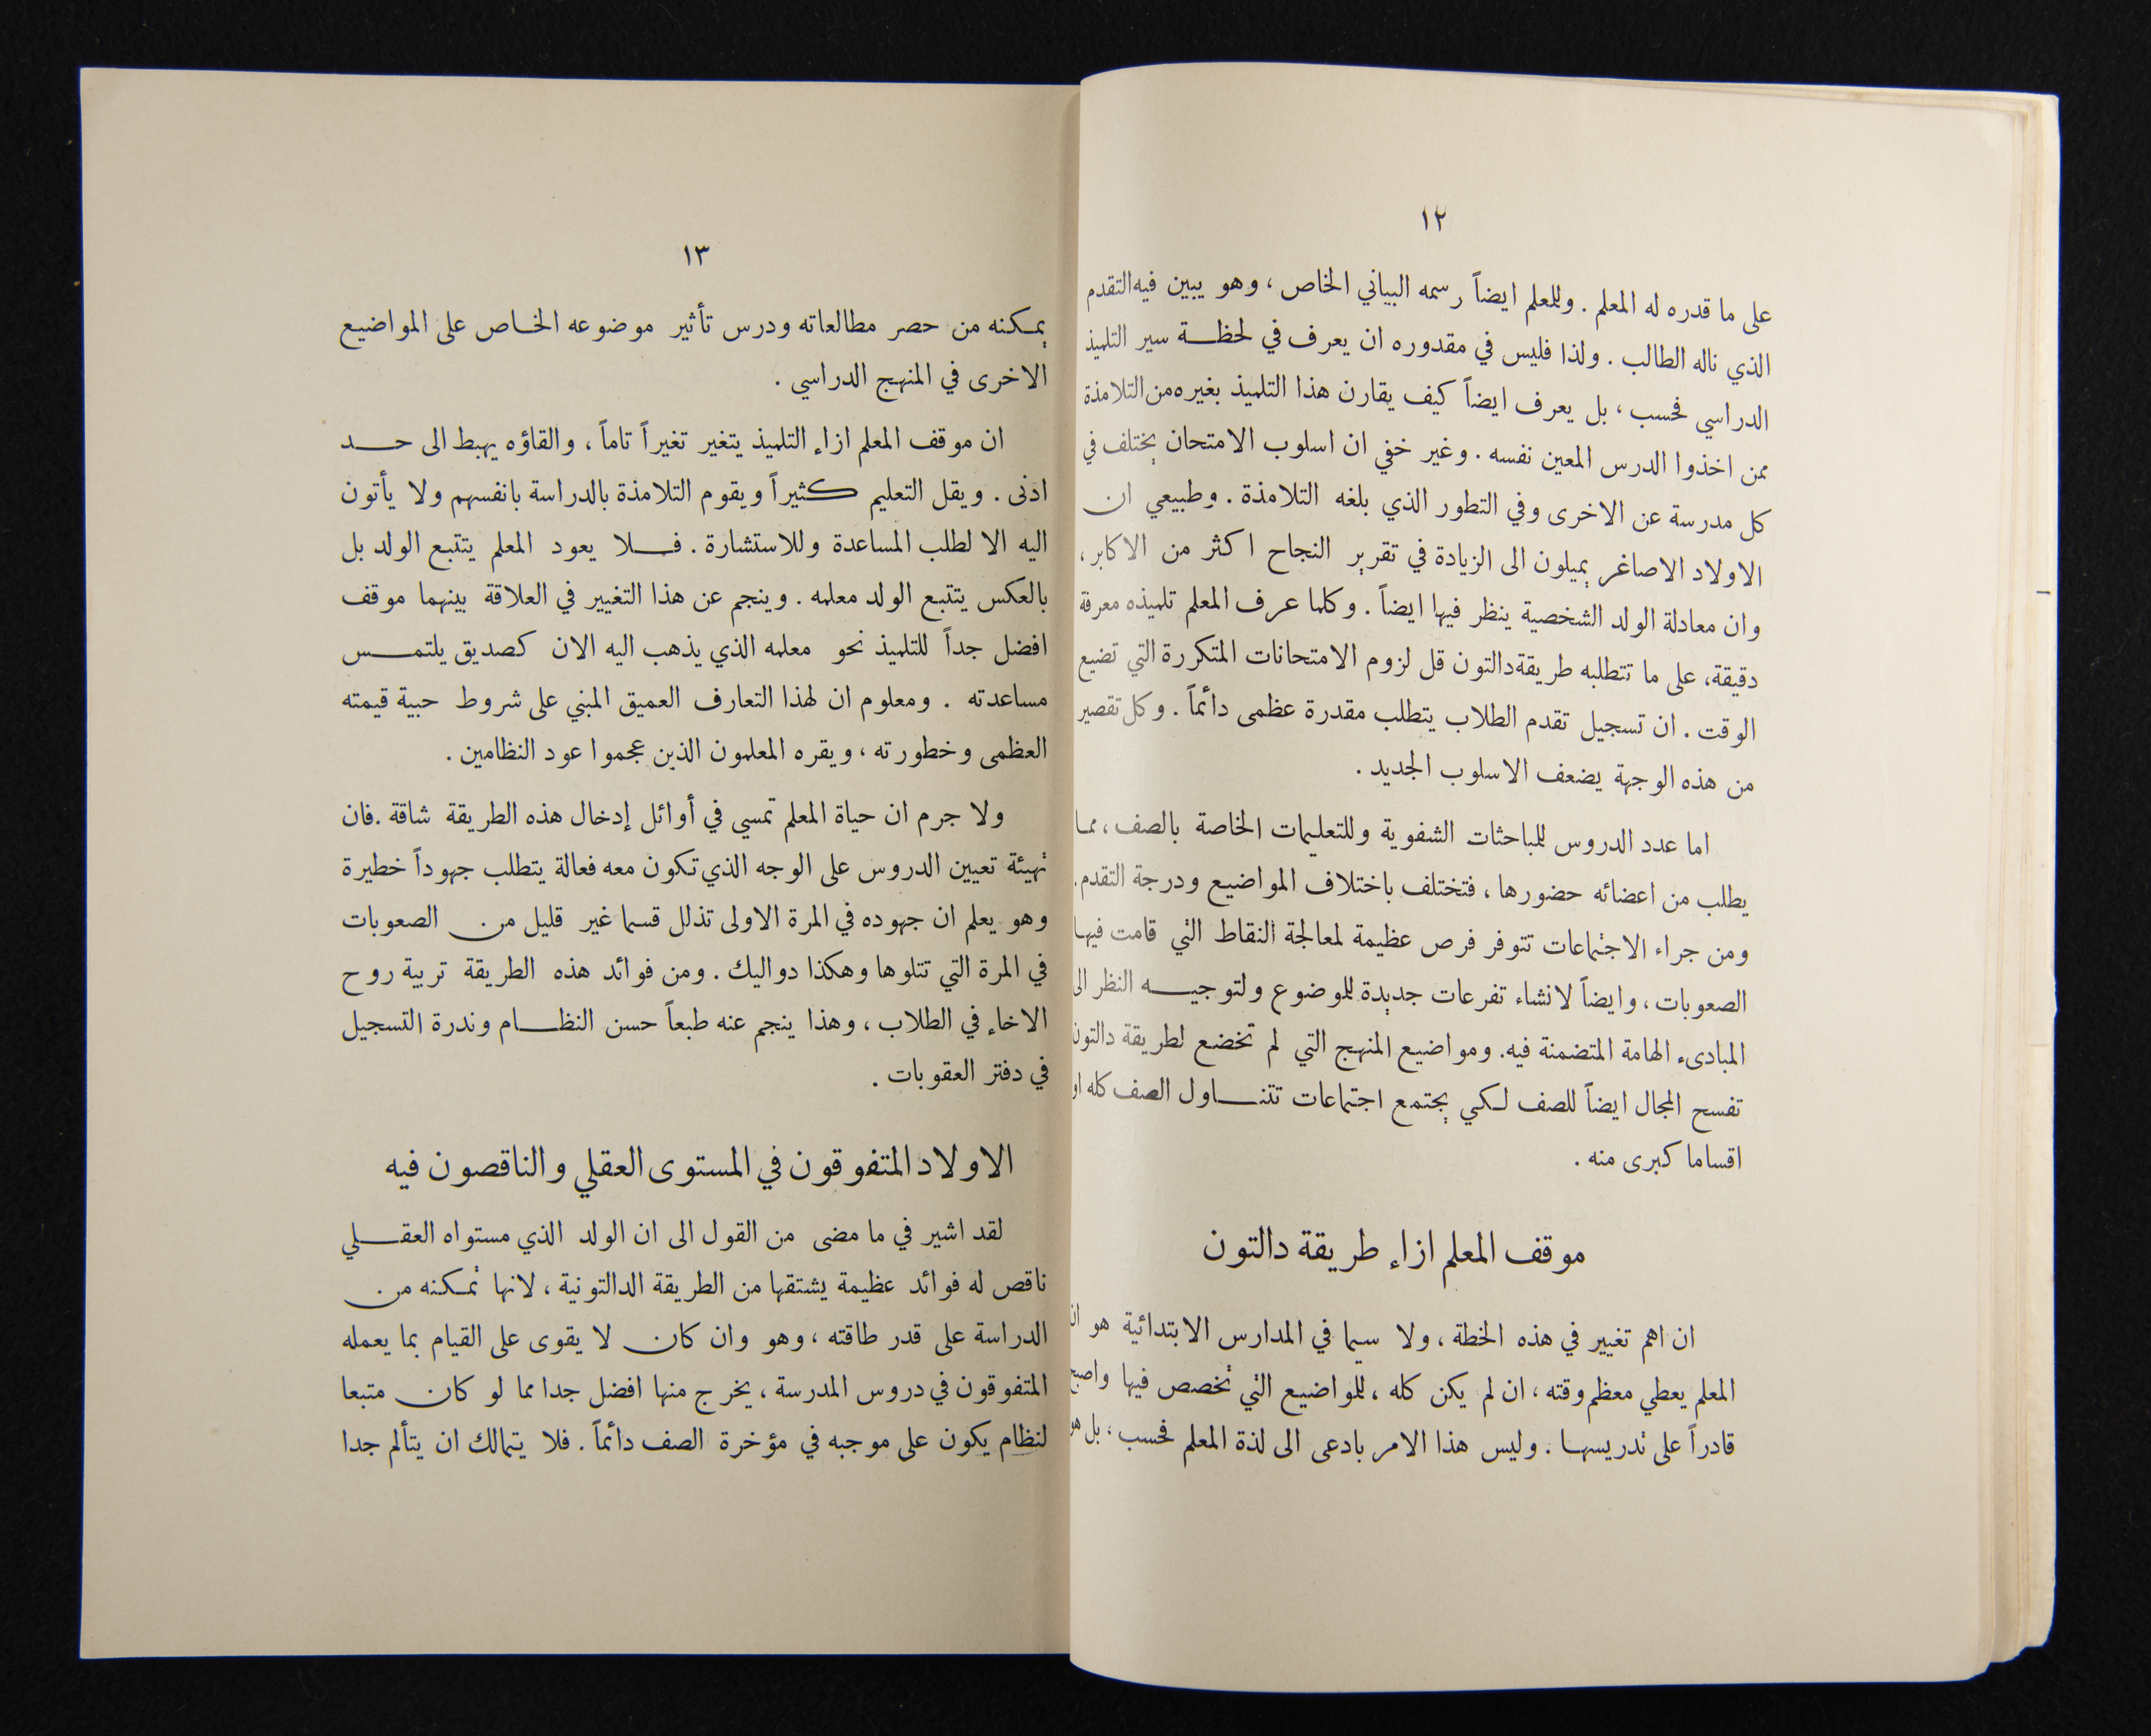 ١٢
على ما قدره له المعلم . وللمعلم ايضاً رسمه البياني الخاص ، وهو يبين فيه التقدم
الذي ناله الطالب . ولذا فليس في مقدوره ان يعرف في لحظة سير التلميذ
الدراسي فحسب ، بل يعرف ايضاً كيف يقارن هذا التلميذ بغيره من التلامذة
ممن اخذوا الدرس المعين نفسه . وغير خفي ان اسلوب الامتحان يختلف في
كل مدرسة عن الاخرى وفي التطور الذي بلغه التلامذة . وطبيعي ان
الاولاد الاصاغر يميلون الى الزيادة في تقرير النجاح اكثر من الاكابر ،
وان معادلة الولد الشخصية ينظر فيها ايضاً . وكلما عرف المعلم تلميذه معرفة
دقيقة، على ما تتطلبه طريقة دالتون قل لزوم الامتحانات المتكررة التي تضيع
الوقت . ان تسجيل تقدم الطلاب يتطلب مقدرة عظمى دائماً . وكل تقصير
من هذه الوجهة يضعف الاسلوب الجديد .
اما عدد الدروس للمباحثات الشفوية وللتعليمات الخاصة بالصف ، مما
يطلب من اعضائه حضورها ، فتختلف باختلاف المواضيع ودرجة التقدم .
ومن جراء الاجتماعات تتوفر فرص عظيمة لمعالجة النقاط التي قامت فيها
الصعوبات ، وايضاً لانشاء تفرعات جديدة للموضوع ولتوجيه النظر الى
المبادىء الهامة المتضمنة فيه. ومواضيع المنهج التي لم تخضع لطريقة دالتون
تفسح المجال ايضاً للصف لكي يجتمع اجتماعات تتناول الصف كله او
اقساما كبرى منه .
موقف المعلم ازاء طريقة دالتون
ان اهم تغيير في هذه الخطة ، ولا سيما في المدارس الابتدائية هو ان
المعلم يعطي معظم وقته ، ان لم يكن كله ، للمواضيع التي تخصص فيها واصبح
قادراً على تدريسها . وليس هذا الامر بادعى الى لذة المعلم فحسب ، بل هو
١٣
يمكنه من حصر مطالعاته ودرس تأثير موضوعه الخاص على المواضيع
الاخرى في المنهج الدراسي .
ان موقف المعلم ازاء التلميذ يتغير تغيراً تاماً ، والقاؤه يهبط الى حد
ادنى . ويقل التعليم كثيراً ويقوم التلامذة بالدراسة بانفسهم ولا يأتون
اليه الا لطلب المساعدة وللاستشارة . فلا يعود المعلم يتتبع الولد بل
بالعكس يتتبع الولد معلمه . وينجم عن هذا التغيير في العلاقة بينهما موقف
افضل جداً للتلميذ نحو معلمه الذي يذهب اليه الان كصديق يلتمس
مساعدته . ومعلوم ان لهذا التعارف العميق المبني على شروط حبية قيمته
العظمى وخطورته ، ويقره المعلمون الذين عجموا عود النظامين .
ولا جرم ان حياة المعلم تمسي في أوائل إدخال هذه الطريقة شاقة .فان
تهيئة تعيين الدروس على الوجه الذي تكون معه فعالة يتطلب جهوداً خطيرة
وهو يعلم ان جهوده في المرة الاولى تذلل قسما غير قليل من الصعوبات
في المرة التي تتلوها وهكذا دواليك . ومن فوائد هذه الطريقة تربية روح
الاخاء في الطلاب ، وهذا ينجم عنه طبعاً حسن النظام وندرة التسجيل
في دفتر العقوبات .
الاولاد المتفوقون في المستوى العقلي والناقصون فيه
لقد اشير في ما مضى من القول الى ان الولد الذي مستواه العقلي
ناقص له فوائد عظيمة يشتقها من الطريقة الدالتونية ، لانها تمكنه من
الدراسة على قدر طاقته ، وهو وان كان لا يقوى على القيام بما يعمله
المتفوقون في دروس المدرسة ، يخرج منها افضل جدا مما لو كان متبعا
لنظام يكون على موجبه في مؤخرة الصف دائماً . فلا يتمالك ان يتألم جدا